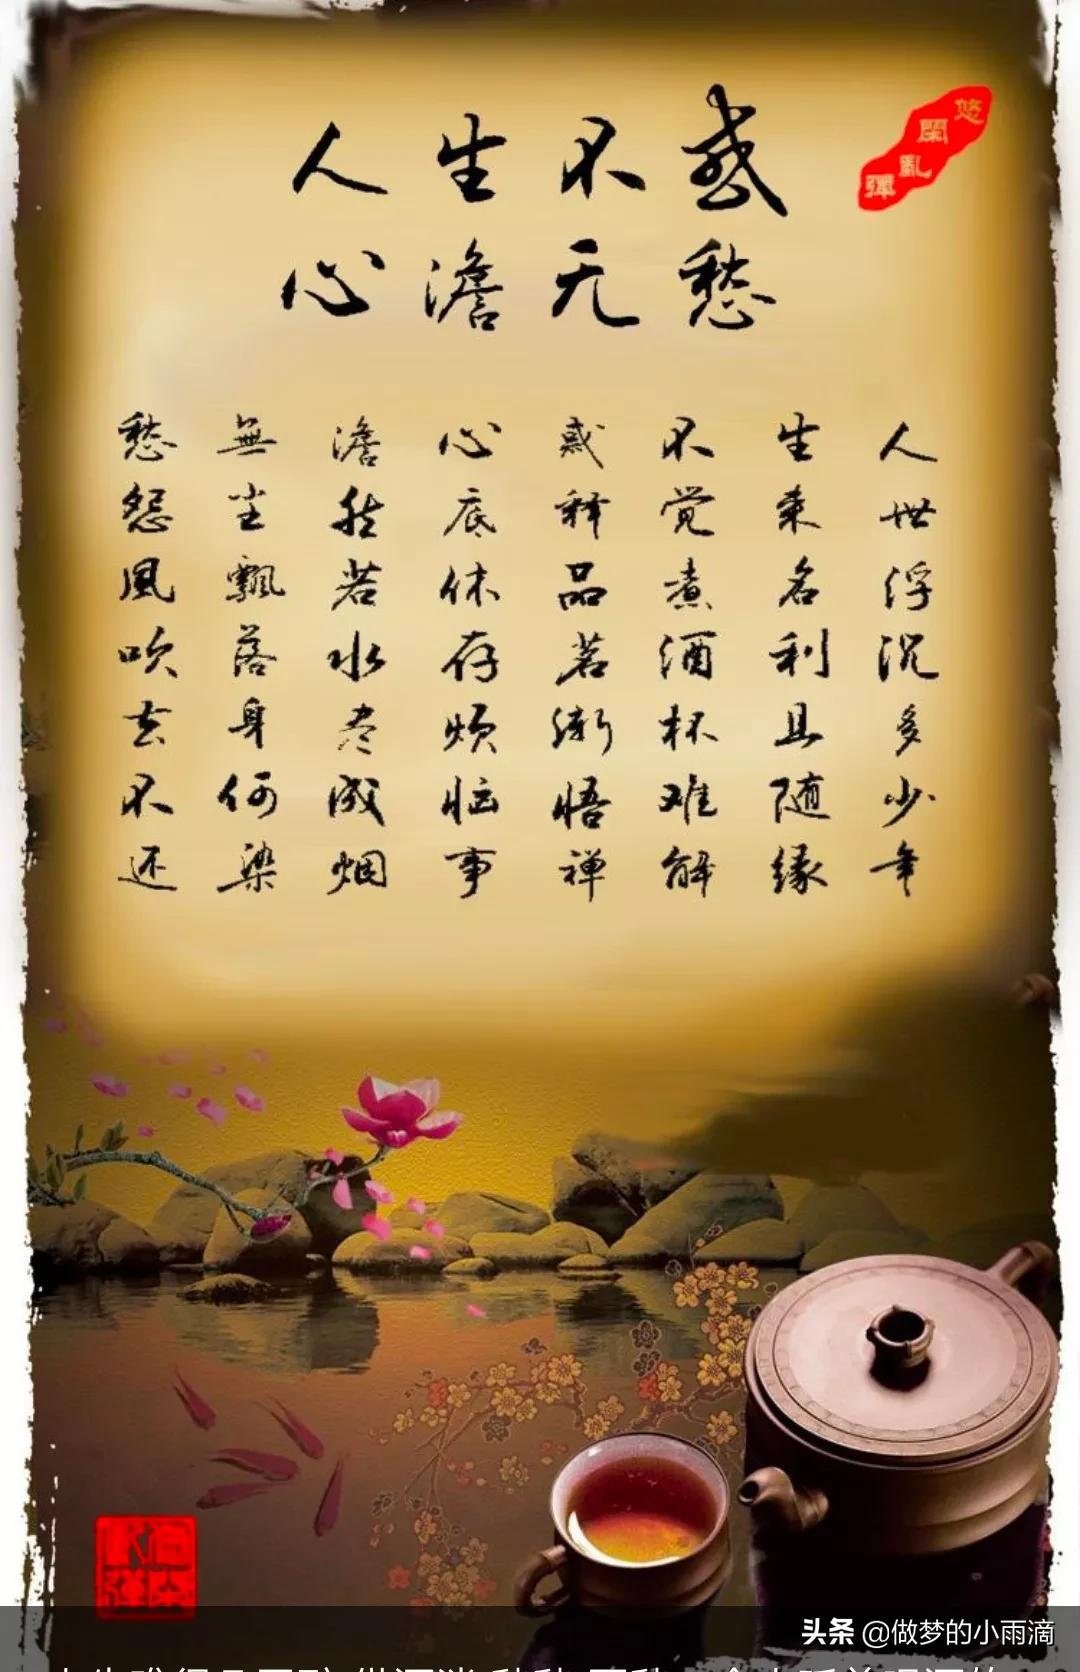 人生不惑
心澹无愁
悠閑亂彈
人世浮沉多少年
生来名利且随缘
不觉煮酒杯难解
惑释品茗渐悟禅
心底休存烦恼事
澹然若水尽成烟
無尘飄落身何染
愁怨風吹去不还
头条 @做梦的小雨滴